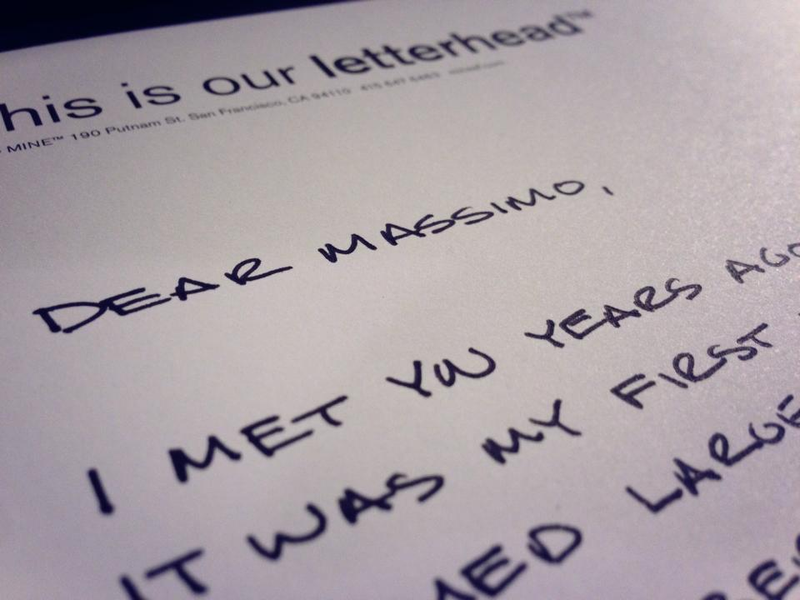 his is our letterhead™
MINE™ 190 Putnam St. San Francisco, CA 94110 415 647 6463
DEAR MASSIMO,
I MET YOU YEARS AGO
IT WAS MY FIRST
MED LARGE